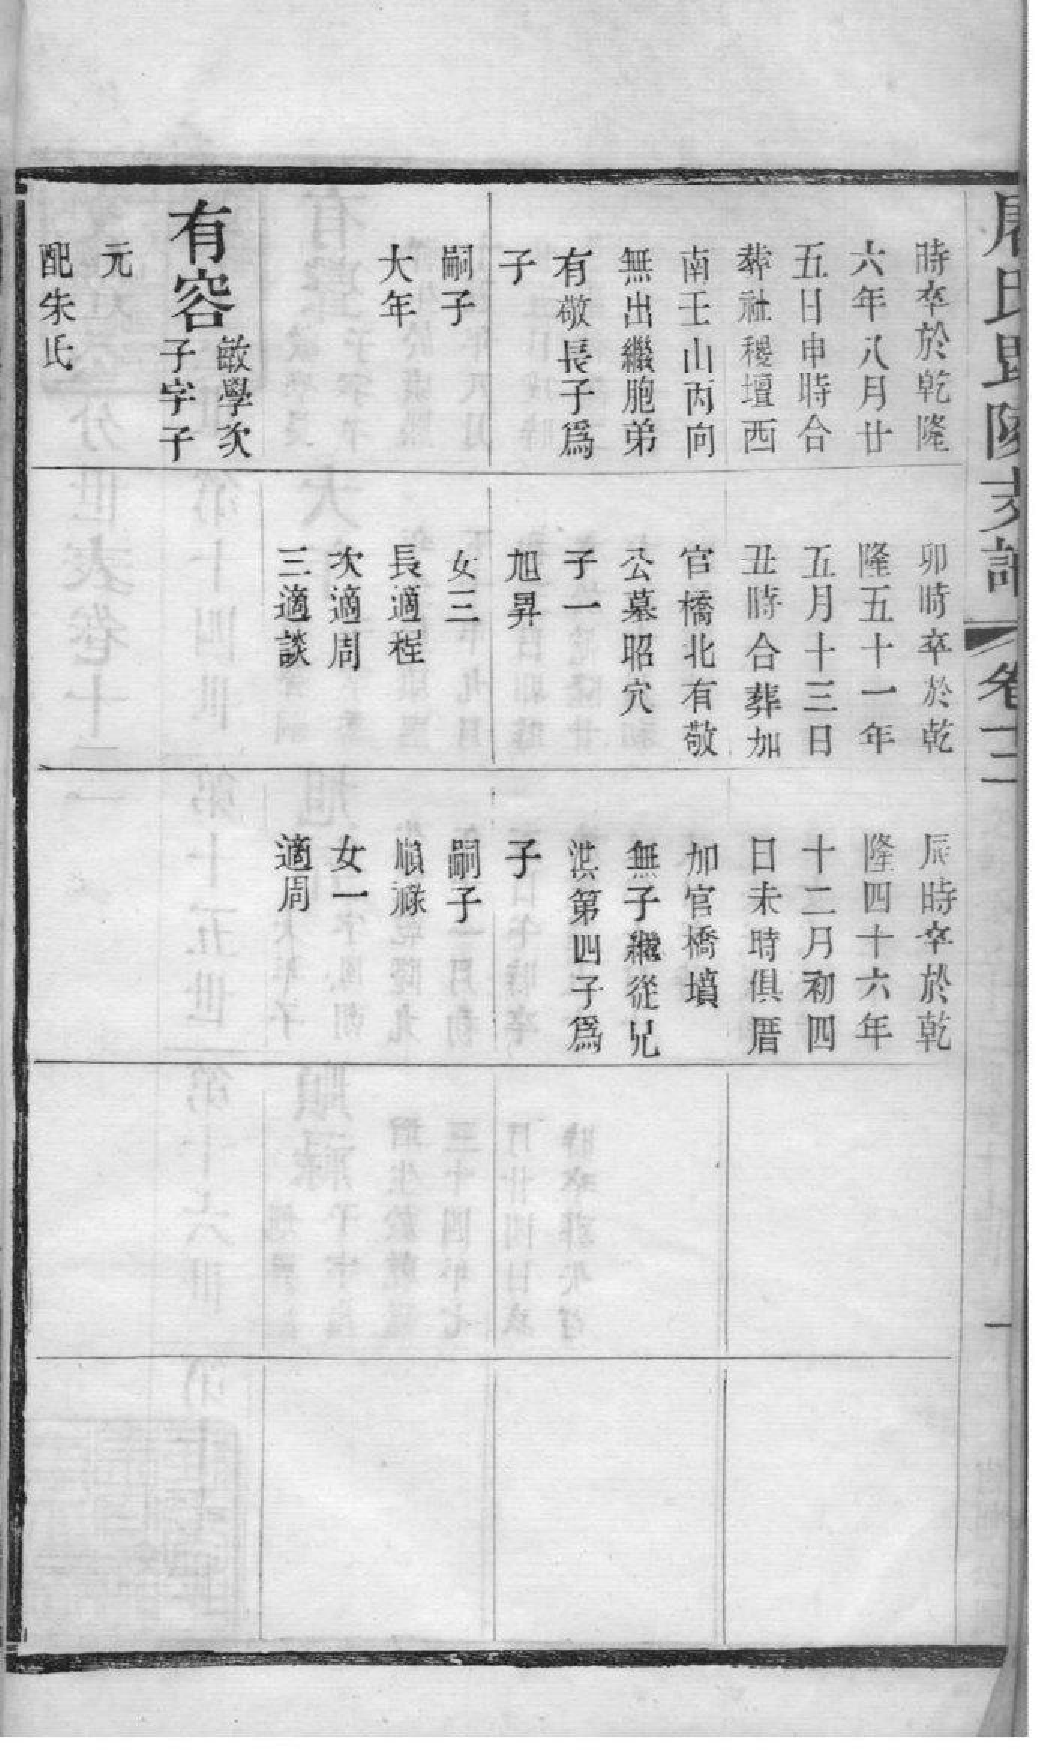 時卒於乾隆
六年八月廿
五日申時合
葬社稷壇西
南壬山丙向
無出繼胞弟
有敬長子爲
子
嗣子
大年
有容
敏學次
子字子
元
配朱氏
卯時卒於乾
隆五十一年
五月十三日
丑時合葬加
官橋北有敬
公墓昭穴
子一
旭昇
女三
長適程
次適周
三適談
辰時卒於乾
隆四十六年
十二月初四
日未時俱厝
加官橋墳
無子繼從兄
洪第四子爲
子
嗣子
順祿
女一
適周
卷十二
一